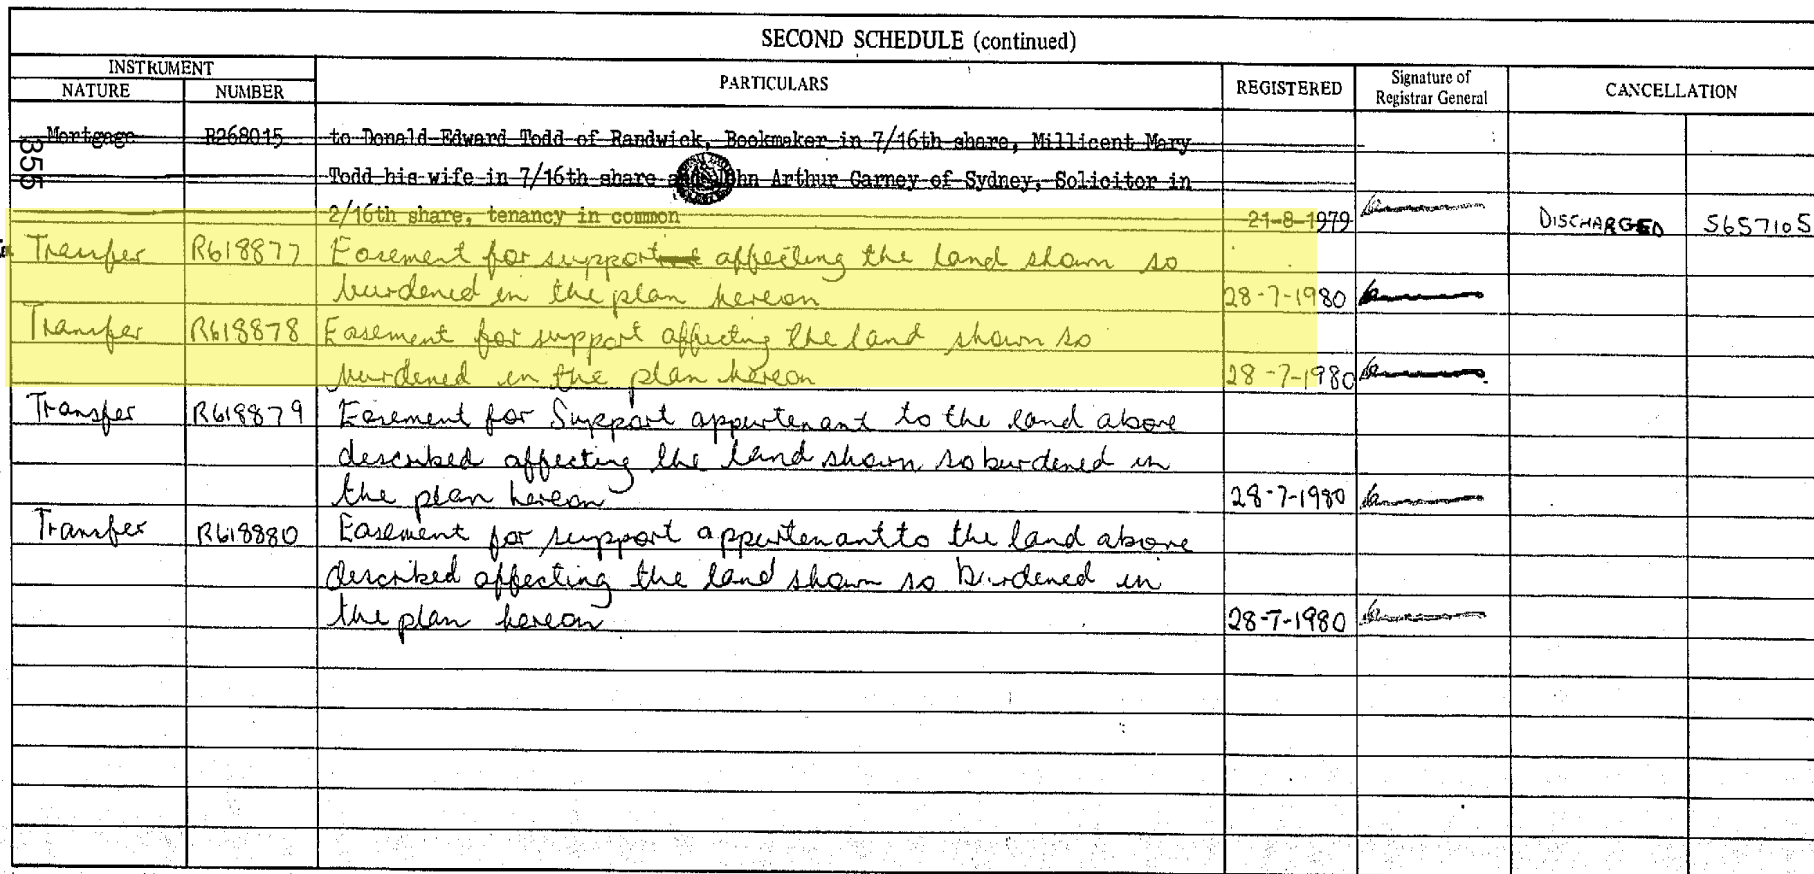 SECOND SCHEDULE (continued)
INSTRUMENT
NATURE NUMBER PARTICULARS REGISTERED Signature of Registrar General CANCELLATION
Mortgage R268015 to Donald Edward Todd of Randwick, Bookmaker in 7/16th share, Millicent Mary
355
Todd his wife in 7/16th share John Arthur Garney of Sydney, Solicitor in
2/16th share, tenancy in common 21-8-1979 DISCHARGED S657105
Transfer R618877 Easement for support affecting the land shown so
burdened in the plan hereon 28-7-1980
Transfer R618878 Easement for support affecting the land shown so
burdened in the plan hereon 28-7-1980
Transfer R618879 Easement for Support appurtenant to the land above
described affecting the land shown so burdened in
the plan hereon 28-7-1980
Transfer R618880 Easement for support appurtenant to the land above
described affecting the land shown so burdened in
the plan hereon 28-7-1980